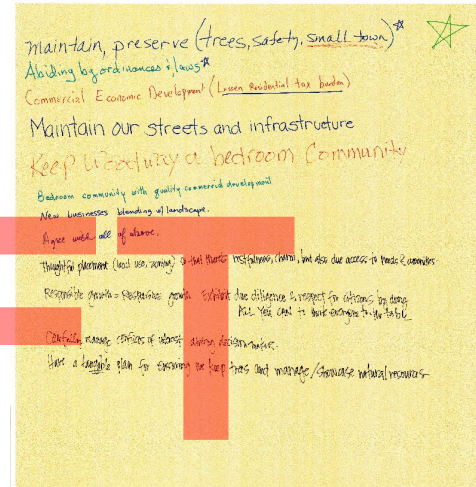 Maintain, preserve (trees, safety, small town)
Abiding by ordinances & laws
Commercial Economic Development (Lessen Residential tax burden)
Maintain our streets and infrastructure
Keep Woodway a bedroom Community
Bedroom community with quality commercial development
New businesses blending w/ landscape.
Agree with all of above.
Thoughtful placement (land use, zoning) so that restfulness, charm, but also due access to & amenities
Responsible growth = Responsive growth. Exhibit due diligence & respect for citizens by doing
ALL you can to to the table
Carefully manage conflicts of interest during decision-making.
Have a tangible plan for ensuring we keep trees and manage/showcase natural resources